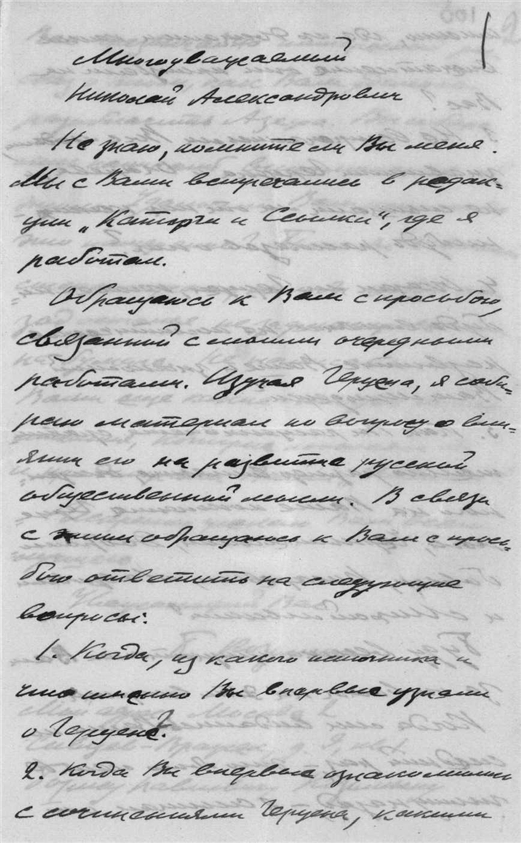 Многоуважаемый
Николай Александрович
Не знаю, помните ли Вы меня.
Мы с Вами встречались в редак-
ции „Каторги и Ссылки“, где я
работал.
Обращаюсь к Вам с просьбою,
связанной с моими очередными
работами. Изучая Герцена, я соби-
раю материал по вопросу о вли-
янии его на развитие русской
общественной мысли. В связи
с этим обращаюсь к Вам с прось-
бою ответить на следующие
вопросы:
1. Когда, из какого источника и
что именно Вы впервые узнали
о Герцене?
2. Когда Вы впервые ознакомились
с сочинениями Герцена, какими